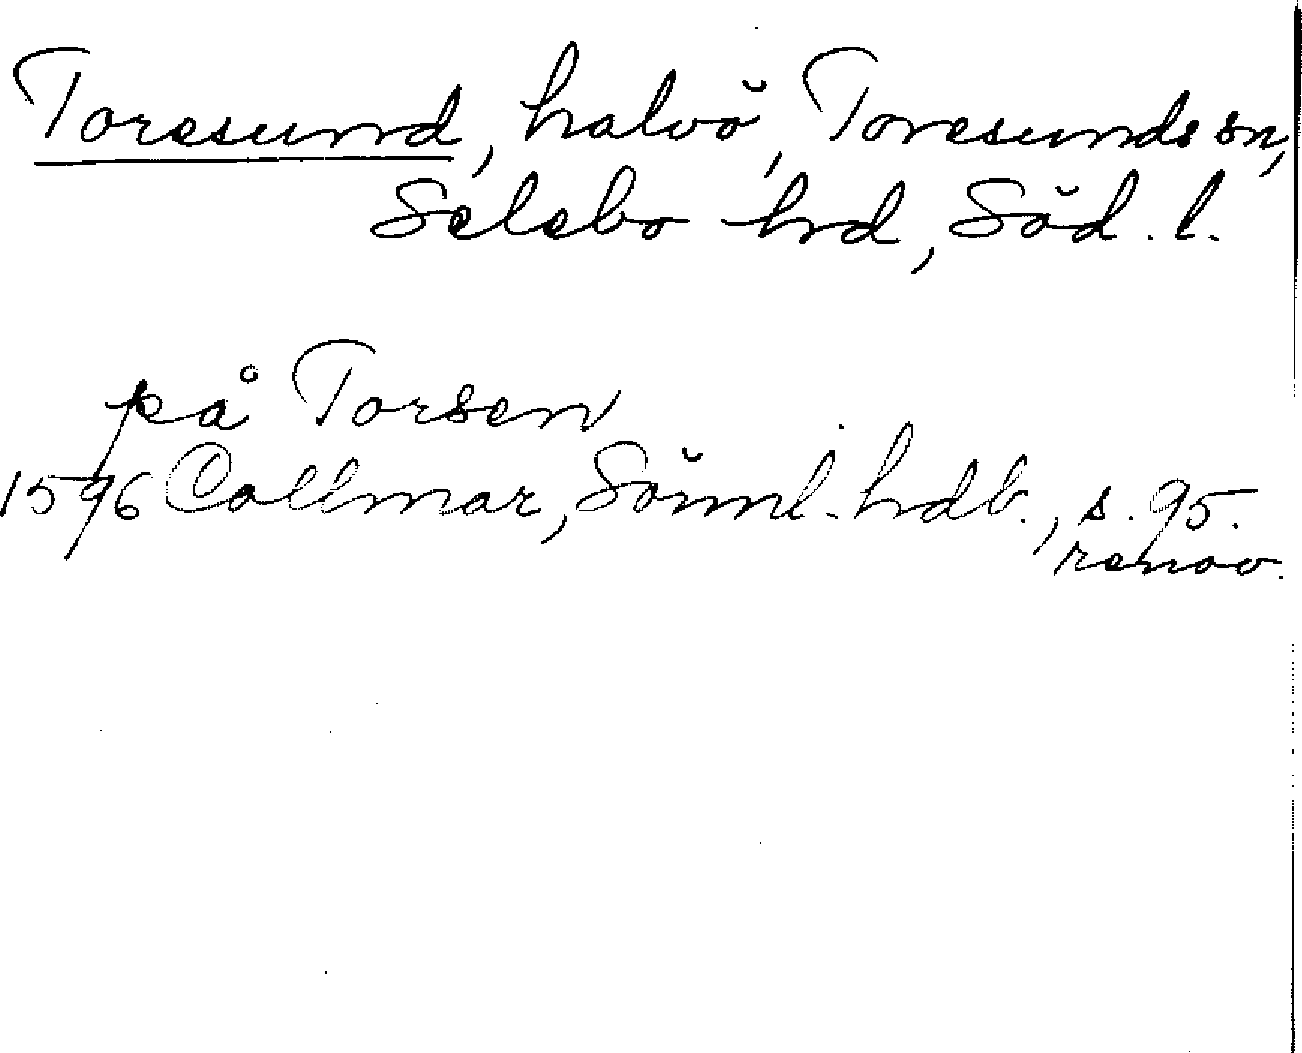 Toresund, halvö, Toresunds sn,
Selebo hrd, Söd. l.
på Torsen
1596 Collmar, Sörml. hdb., s. 95.
renov.